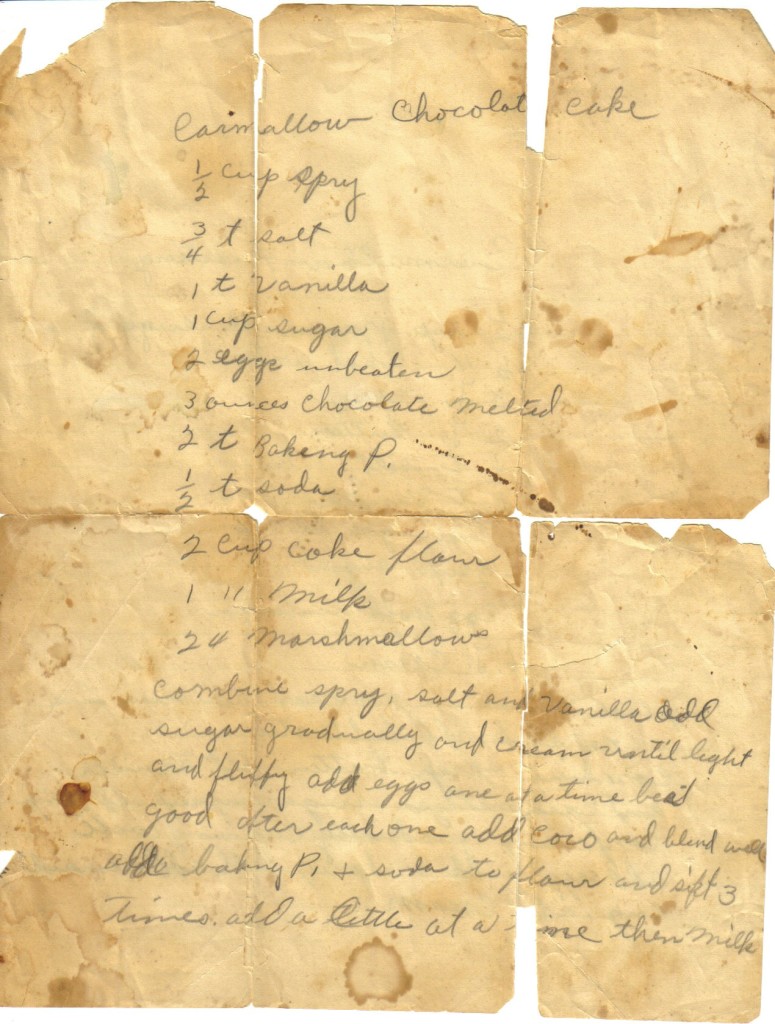 Carmallow Chocolat cake
1/2 cup spry
3/4 t salt
1 t Vanilla
1 cup sugar
2 eggs unbeaten
3 ounces Chocolate Melted
2 t Baking P.
1/2 t soda
2 Cup cake flour
1 " Milk
24 Marshmallows
Combine spry, salt and Vanilla add
sugar gradually and cream until light
and fluffy add eggs one at a time beat
good after each one add Coco and blend well
add baking P, + soda to flour and sift 3
times. add a little at a time then Milk